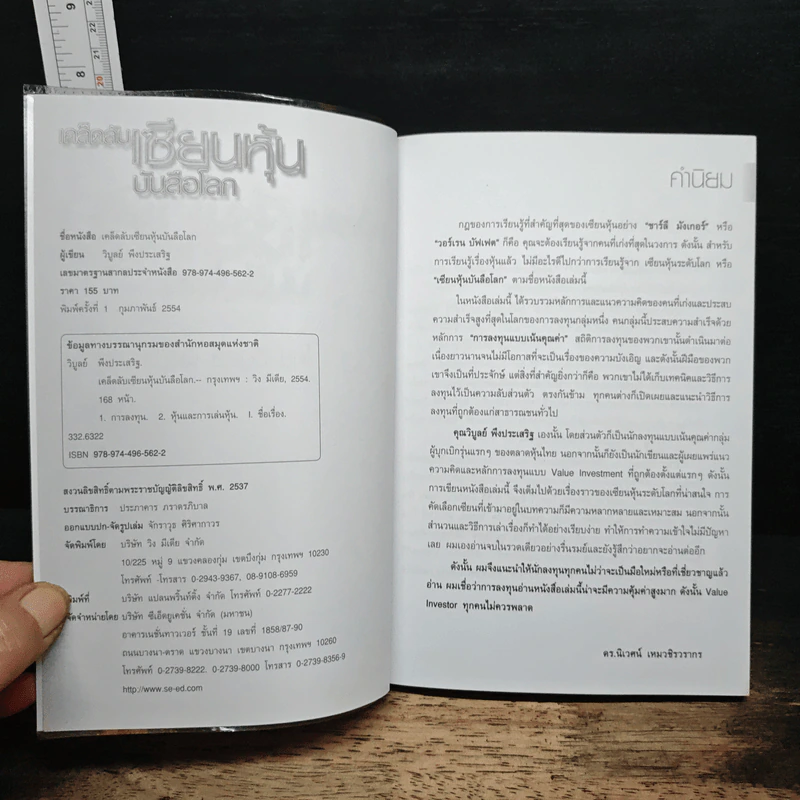 เคล็ดลับ
เซียนหุ้น
บันลือโลก
ชื่อหนังสือ เคล็ดลับเซียนหุ้นบันลือโลก
ผู้เขียน วิบูลย์ พึงประเสริฐ
เลขมาตรฐานสากลประจำหนังสือ 978-974-496-562-2
ราคา 155 บาท
พิมพ์ครั้งที่ 1 กุมภาพันธ์ 2554
ข้อมูลทางบรรณานุกรมของสำนักหอสมุดแห่งชาติ
วิบูลย์ พึงประเสริฐ.
เคล็ดลับเซียนหุ้นบันลือโลก.-- กรุงเทพฯ : วิง มีเดีย, 2554.
168 หน้า.
1. การลงทุน. 2. หุ้นและการเล่นหุ้น. I. ชื่อเรื่อง.
332.6322
ISBN 978-974-496-562-2
สงวนลิขสิทธิ์ตามพระราชบัญญัติลิขสิทธิ์ พ.ศ. 2537
บรรณาธิการ ประภาคาร ภราดรภิบาล
ออกแบบปก-จัดรูปเล่ม จักราวุธ ศิริศากาวร
จัดพิมพ์โดย บริษัท วิง มีเดีย จำกัด
10/225 หมู่ 9 แขวงคลองกุ่ม เขตบึงกุ่ม กรุงเทพฯ 10230
โทรศัพท์ -โทรสาร 0-2943-9367, 08-9108-6959
พิมพ์ที่ บริษัท แปลนพริ้นท์ติ้ง จำกัด โทรศัพท์ 0-2277-2222
จัดจำหน่ายโดย บริษัท ซีเอ็ดยูเคชั่น จำกัด (มหาชน)
อาคารเนชั่นทาวเวอร์ ชั้นที่ 19 เลขที่ 1858/87-90
ถนนบางนา-ตราด แขวงบางนา เขตบางนา กรุงเทพฯ 10260
โทรศัพท์ 0-2739-8222, 0-2739-8000 โทรสาร 0-2739-8356-9
http://www.se-ed.com
คำนิยม
กฎของการเรียนรู้ที่สำคัญที่สุดของเซียนหุ้นอย่าง "ชาร์ลี มังเกอร์" หรือ
"วอร์เรน บัฟเฟต" ก็คือ คุณจะต้องเรียนรู้จากคนที่เก่งที่สุดในวงการ ดังนั้น สำหรับ
การเรียนรู้เรื่องหุ้นแล้ว ไม่มีอะไรดีไปกว่าการเรียนรู้จาก เซียนหุ้นระดับโลก หรือ
"เซียนหุ้นบันลือโลก" ตามชื่อหนังสือเล่มนี้
ในหนังสือเล่มนี้ ได้รวบรวมหลักการและแนวความคิดของคนที่เก่งและประสบ
ความสำเร็จสูงที่สุดในโลกของการลงทุนกลุ่มหนึ่ง คนกลุ่มนี้ประสบความสำเร็จด้วย
หลักการ "การลงทุนแบบเน้นคุณค่า" สถิติการลงทุนของพวกเขานั้นดำเนินมาต่อ
เนื่องยาวนานจนไม่มีโอกาสที่จะเป็นเรื่องของความบังเอิญ และดังนั้นฝีมือของพวก
เขาจึงเป็นที่ประจักษ์ แต่สิ่งที่สำคัญยิ่งกว่าก็คือ พวกเขาไม่ได้เก็บเทคนิคและวิธีการ
ลงทุนไว้เป็นความลับส่วนตัว ตรงกันข้าม ทุกคนต่างก็เปิดเผยและแนะนำวิธีการ
ลงทุนที่ถูกต้องแก่สาธารณชนทั่วไป
คุณวิบูลย์ พึงประเสริฐ เองนั้น โดยส่วนตัวก็เป็นนักลงทุนแบบเน้นคุณค่ากลุ่ม
ผู้บุกเบิกรุ่นแรกๆ ของตลาดหุ้นไทย นอกจากนั้นก็ยังเป็นนักเขียนและผู้เผยแพร่แนว
ความคิดและหลักการลงทุนแบบ Value Investment ที่ถูกต้องตั้งแต่แรกๆ ดังนั้น
การเขียนหนังสือเล่มนี้ จึงเต็มไปด้วยเรื่องราวของเซียนหุ้นระดับโลกที่น่าสนใจ การ
คัดเลือกเซียนที่เข้ามาอยู่ในบทความก็มีความหลากหลายและเหมาะสม นอกจากนั้น
สำนวนและวิธีการเล่าเรื่องก็ทำได้อย่างเรียบง่าย ทำให้การทำความเข้าใจไม่มีปัญหา
เลย ผมเองอ่านจบในรวดเดียวอย่างรื่นรมย์และยังรู้สึกว่าอยากจะอ่านต่ออีก
ดังนั้น ผมจึงแนะนำให้นักลงทุนทุกคนไม่ว่าจะเป็นมือใหม่หรือที่เชี่ยวชาญแล้ว
อ่าน ผมเชื่อว่าการลงทุนอ่านหนังสือเล่มนี้น่าจะมีความคุ้มค่าสูงมาก ดังนั้น Value
Investor ทุกคนไม่ควรพลาด
ดร.นิเวศน์ เหมวชิรวรากร